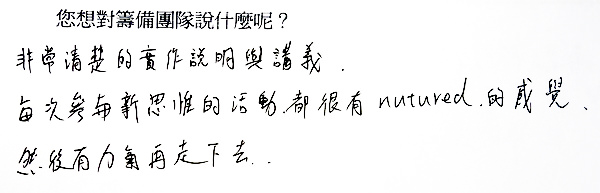 您想對籌備團隊說什麼呢？
非常清楚的實作說明與講義.
每次參與新思惟的活動.都很有 nutured.的感覺、
然後有力氣再走下去..